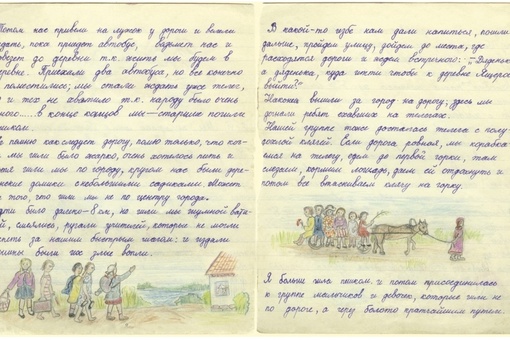 Потом нас привели на лужок у дороги и велели
ждать, пока придет автобус, возьмет нас и
довезет до деревни т.к. жить мы будем в
деревне. Приехали два автобуса, но все конечно
не поместились; мы стали ждать уже телег,
но и тех не хватило т.к. народу было очень
много.... в конце концов мы — старшие пошли
пешком.
Не помню как следует дорогу, помню только, что по-
ка мы шли было жарко, очень хотелось пить и
хотя шли мы по городу, кругом нас были дере-
венские домики с небольшими садиками: может
от того, что шли мы не по центру города.
Идти было далеко - 8 км, но шли мы шумной вата-
гой, смеялись, ругали учителей, которые не могли
успеть за нашим быстрым шагом: и издали
слышны были их злые вопли.
В какой-то избе нам дали напиться, пошли
дальше, пройдем улицу, дойдем до места, где
расходятся дороги и ждем встречного: - "Дяденька
а дяденька, куда итти чтобы к деревне
выйти?"
Наконец вышли за город на дорогу; здесь мы
догнали ребят ехавших на телегах.
Нашей группе тоже досталась телега с полу-
дохлой клячей. Если дорога ровная, мы
на телегу, едем до первой горки, там
слезаем, кормим лошадь, даем ей отдохнуть и
потом все втаскиваем клячу на горку.
Я больше шла пешком: и потом присоединилась
к группе мальчиков и девочек, которые шли не
по дороге, а через болото кратчайшим путем.